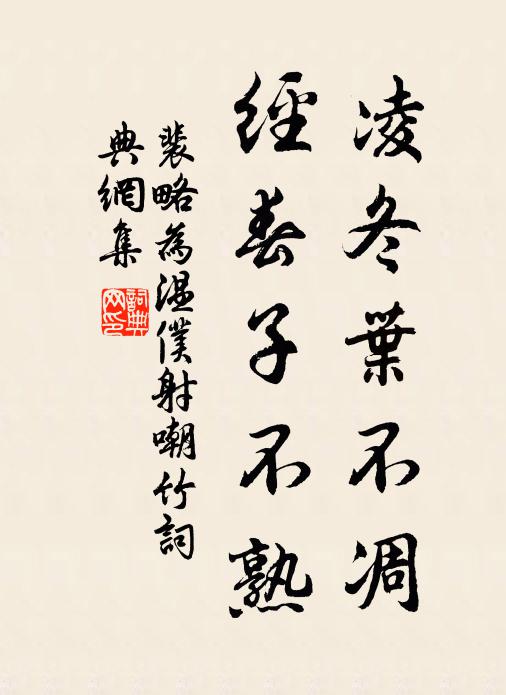 凌冬葉不凋
經春子不熟
裴略為温僕射嘲竹詞
典網集
詞典网印